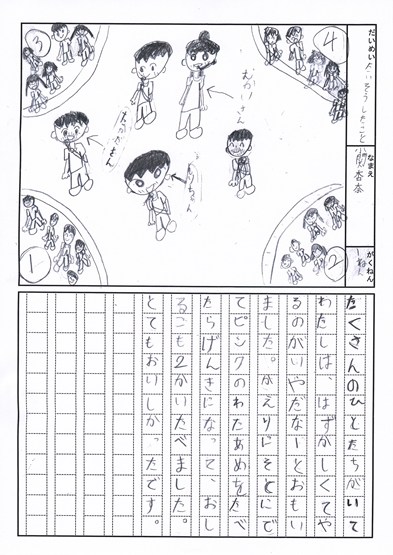 だいめい
たいそうしたこと
なまえ
がくねん
3
4
1
2
たくさんのひとたちがいて
わたしは、はずかしくてや
るのがいやだなーとおもい
ました。かえりにそとにで
てピンクのわたあめをたべ
たらげんきになって、おし
るこも2かいたべました。
とてもおいしかったです。